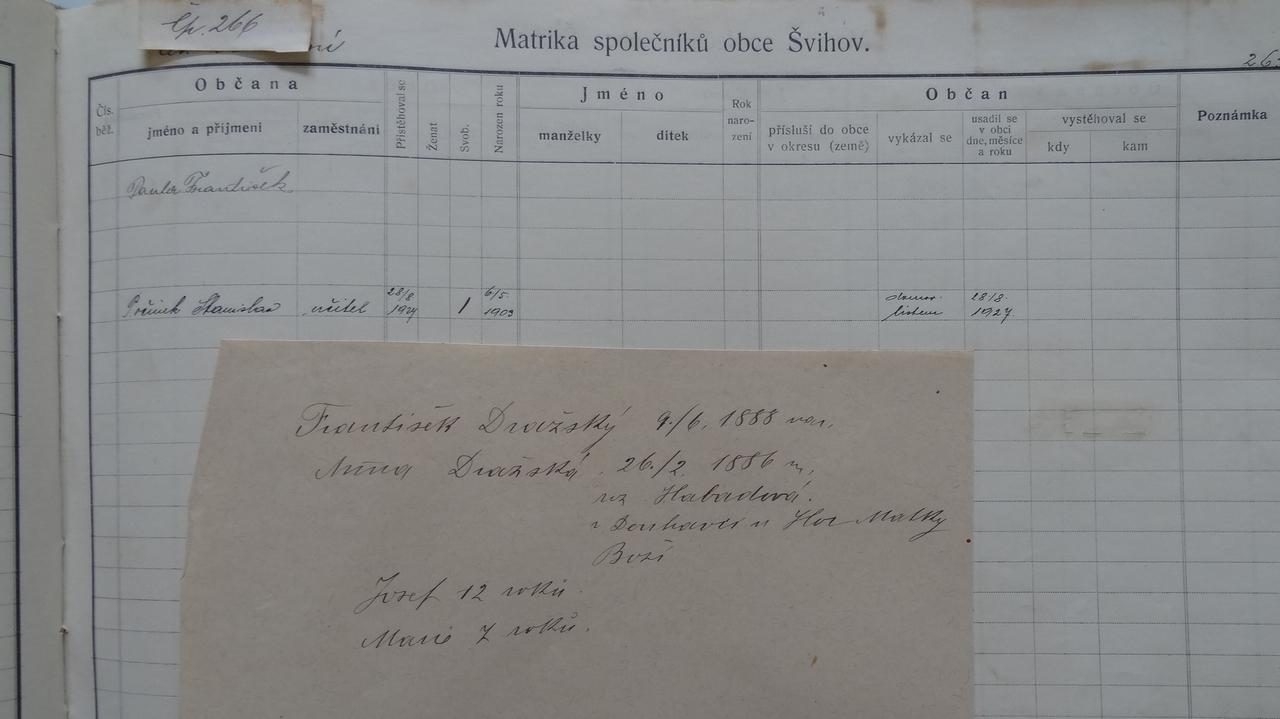 čp. 266
Matrika společníků obce Švihov.
Občana
Jméno
Občan
Čís. běž.
jméno a příjmení
zaměstnání
Přistěhoval se
Ženat
Svob.
Narozen roku
manželky
dítek
Rok naro- zení
přísluší do obce v okresu (země)
vykázal se
usadil se v obci dne, měsíce a roku
vystěhoval se
kdy
kam
Poznámka
František
Stanislav učitel 28/8 1927 / 6/5 1903 domov. listem 28/8. 1927.
František Dražský 9./6. 1888 nar.
Anna Dražská 26./2. 1886 n.
roz Habadová.
u Hor Matky
Boží
Josef 12 roků.
Marie 7 roků.